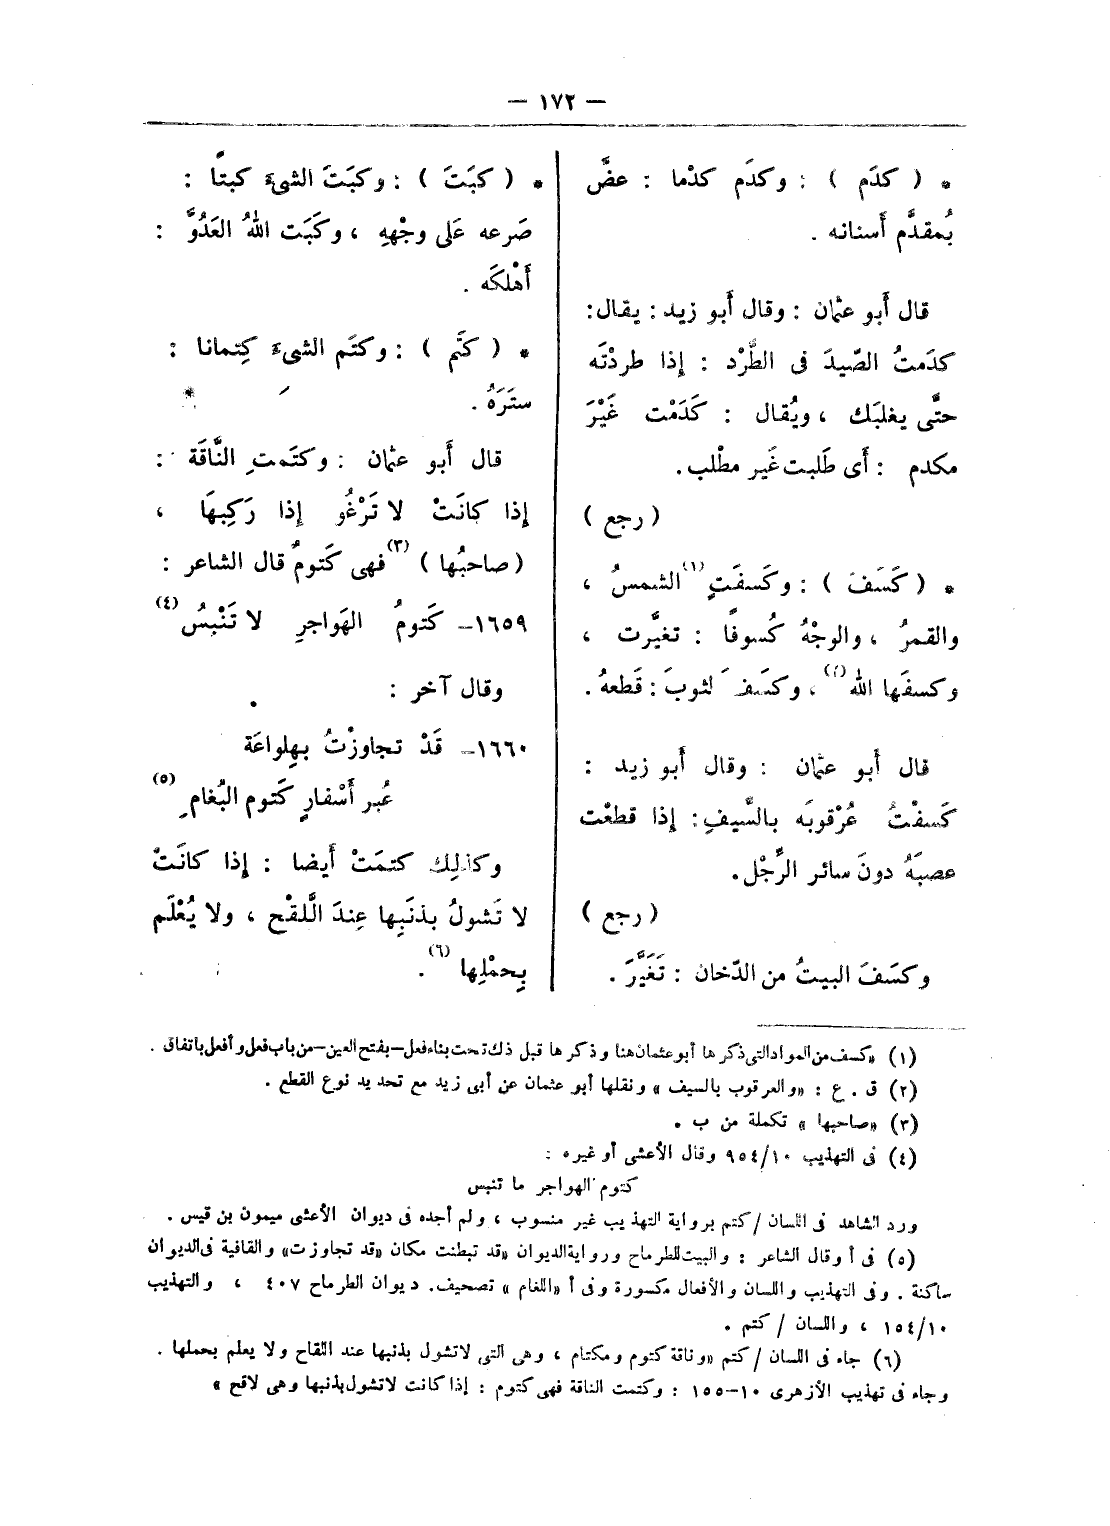 — ١٧٢ —
* ( كدَم ) : وكدَم كدْما : عضَّ
بُمقدَّم أَسنانه .
قال أَبو عثمان : وقال أَبو زيد : يقال:
كدَمتُ الصّيدَ فى الطَّرْد : إِذا طردْتَه
حتَّى يغلبَك ، ويُقال : كَدَمْت غَيْرَ
مكدم : أَى طَلبت غَير مطْلب.
( رجع )
* ( كَسَفَ ) : وكَسفَتِ (١) الشمسُ ،
والقمرُ ، والوجْهُ كُسوفًا : تغيَّرت ،
وكسفَها الله (٢) ، وكسَفَ لثوبَ : قَطعهُ .
قال أَبو عثمان : وقال أَبو زيد :
كَسفْتُ عُرْقوبَه بالسَّيفِ : إِذا قطعْت
عصبَهُ دونَ سائر الرَّجْل.
( رجع )
وكسَفَ البيتُ من الدّخان : تَغَيَّرَ .
* ( كبَتَ ) : وكبَتَ الشىءَ كبتًا :
صَرعه عَلى وجْههِ ، وكَبَت اللهُ العَدُوَّ :
أَهْلكَه .
* ( كتَم ) : وكتَم الشىءَ كِتمانا :
سترَهُ .
قال أَبو عثمان : وكتَمتِ النَّاقَة :
إِذا كانَتْ لا تَرْغُو إِذا رَكِبهَا ،
( صاحبُها ) (٣) فهى كَتومٌ قال الشاعر :
١٦٥٩– كَتومُ الهَواجرِ لا تَنْبِسُ (٤)
وقال آخر :
١٦٦٠– قَدْ تجاوزْتُ بهِلواعَة
عُبر أَسْفارٍ كَتوم البُغامِ (٥)
وكذلِك كتمَتْ أَيضا : إِذا كانَتْ
لا تَشولُ بذنَبِها عِندَ اللَّلقْح ، ولا يُعْلَم
بِحمْلِها (٦) .
(١) «كسف من المواد التى ذكرها أبو عثمان هنا وذكرها قبل ذلك تحت بناء فعل – بفتح العين – من باب فعل وأفعل باتفاق .
(٢) ق . ع : «والعرقوب بالسيف» ونقلها أبو عثمان عن أبى زيد مع تحديد نوع القطع .
(٣) «صاحبها» تكملة من ب .
(٤) فى التهذيب ٩٥٤/١٠ وقال الأعشى أو غيره :
كتوم الهواجر ما تنبس
ورد الشاهد فى اللسان / كتم برواية التهذيب غير منسوب ، ولم أجده فى ديوان الأعشى ميمون بن قيس .
(٥) فى أ وقال الشاعر : والبيت للطرماح ورواية الديوان «قد تبطنت مكان «قد تجاوزت» والقافية فى الديوان
ساكنة . وفى التهذيب واللسان والأفعال مكسورة وفى أ «اللغام» تصحيف. ديوان الطرماح ٤٠٧ ، والتهذيب
١٥٤/١٠ ، واللسان / كتم .
(٦) جاء فى اللسان / كتم «وناقة كتوم ومكتام ، وهى التى لا تشول بذنبها عند اللقاح ولا يعلم بحملها .
وجاء فى تهذيب الأزهرى ١٠–١٥٥ : وكتمت الناقة فهى كتوم : إذا كانت لا تشول بذنبها وهى لاقح »